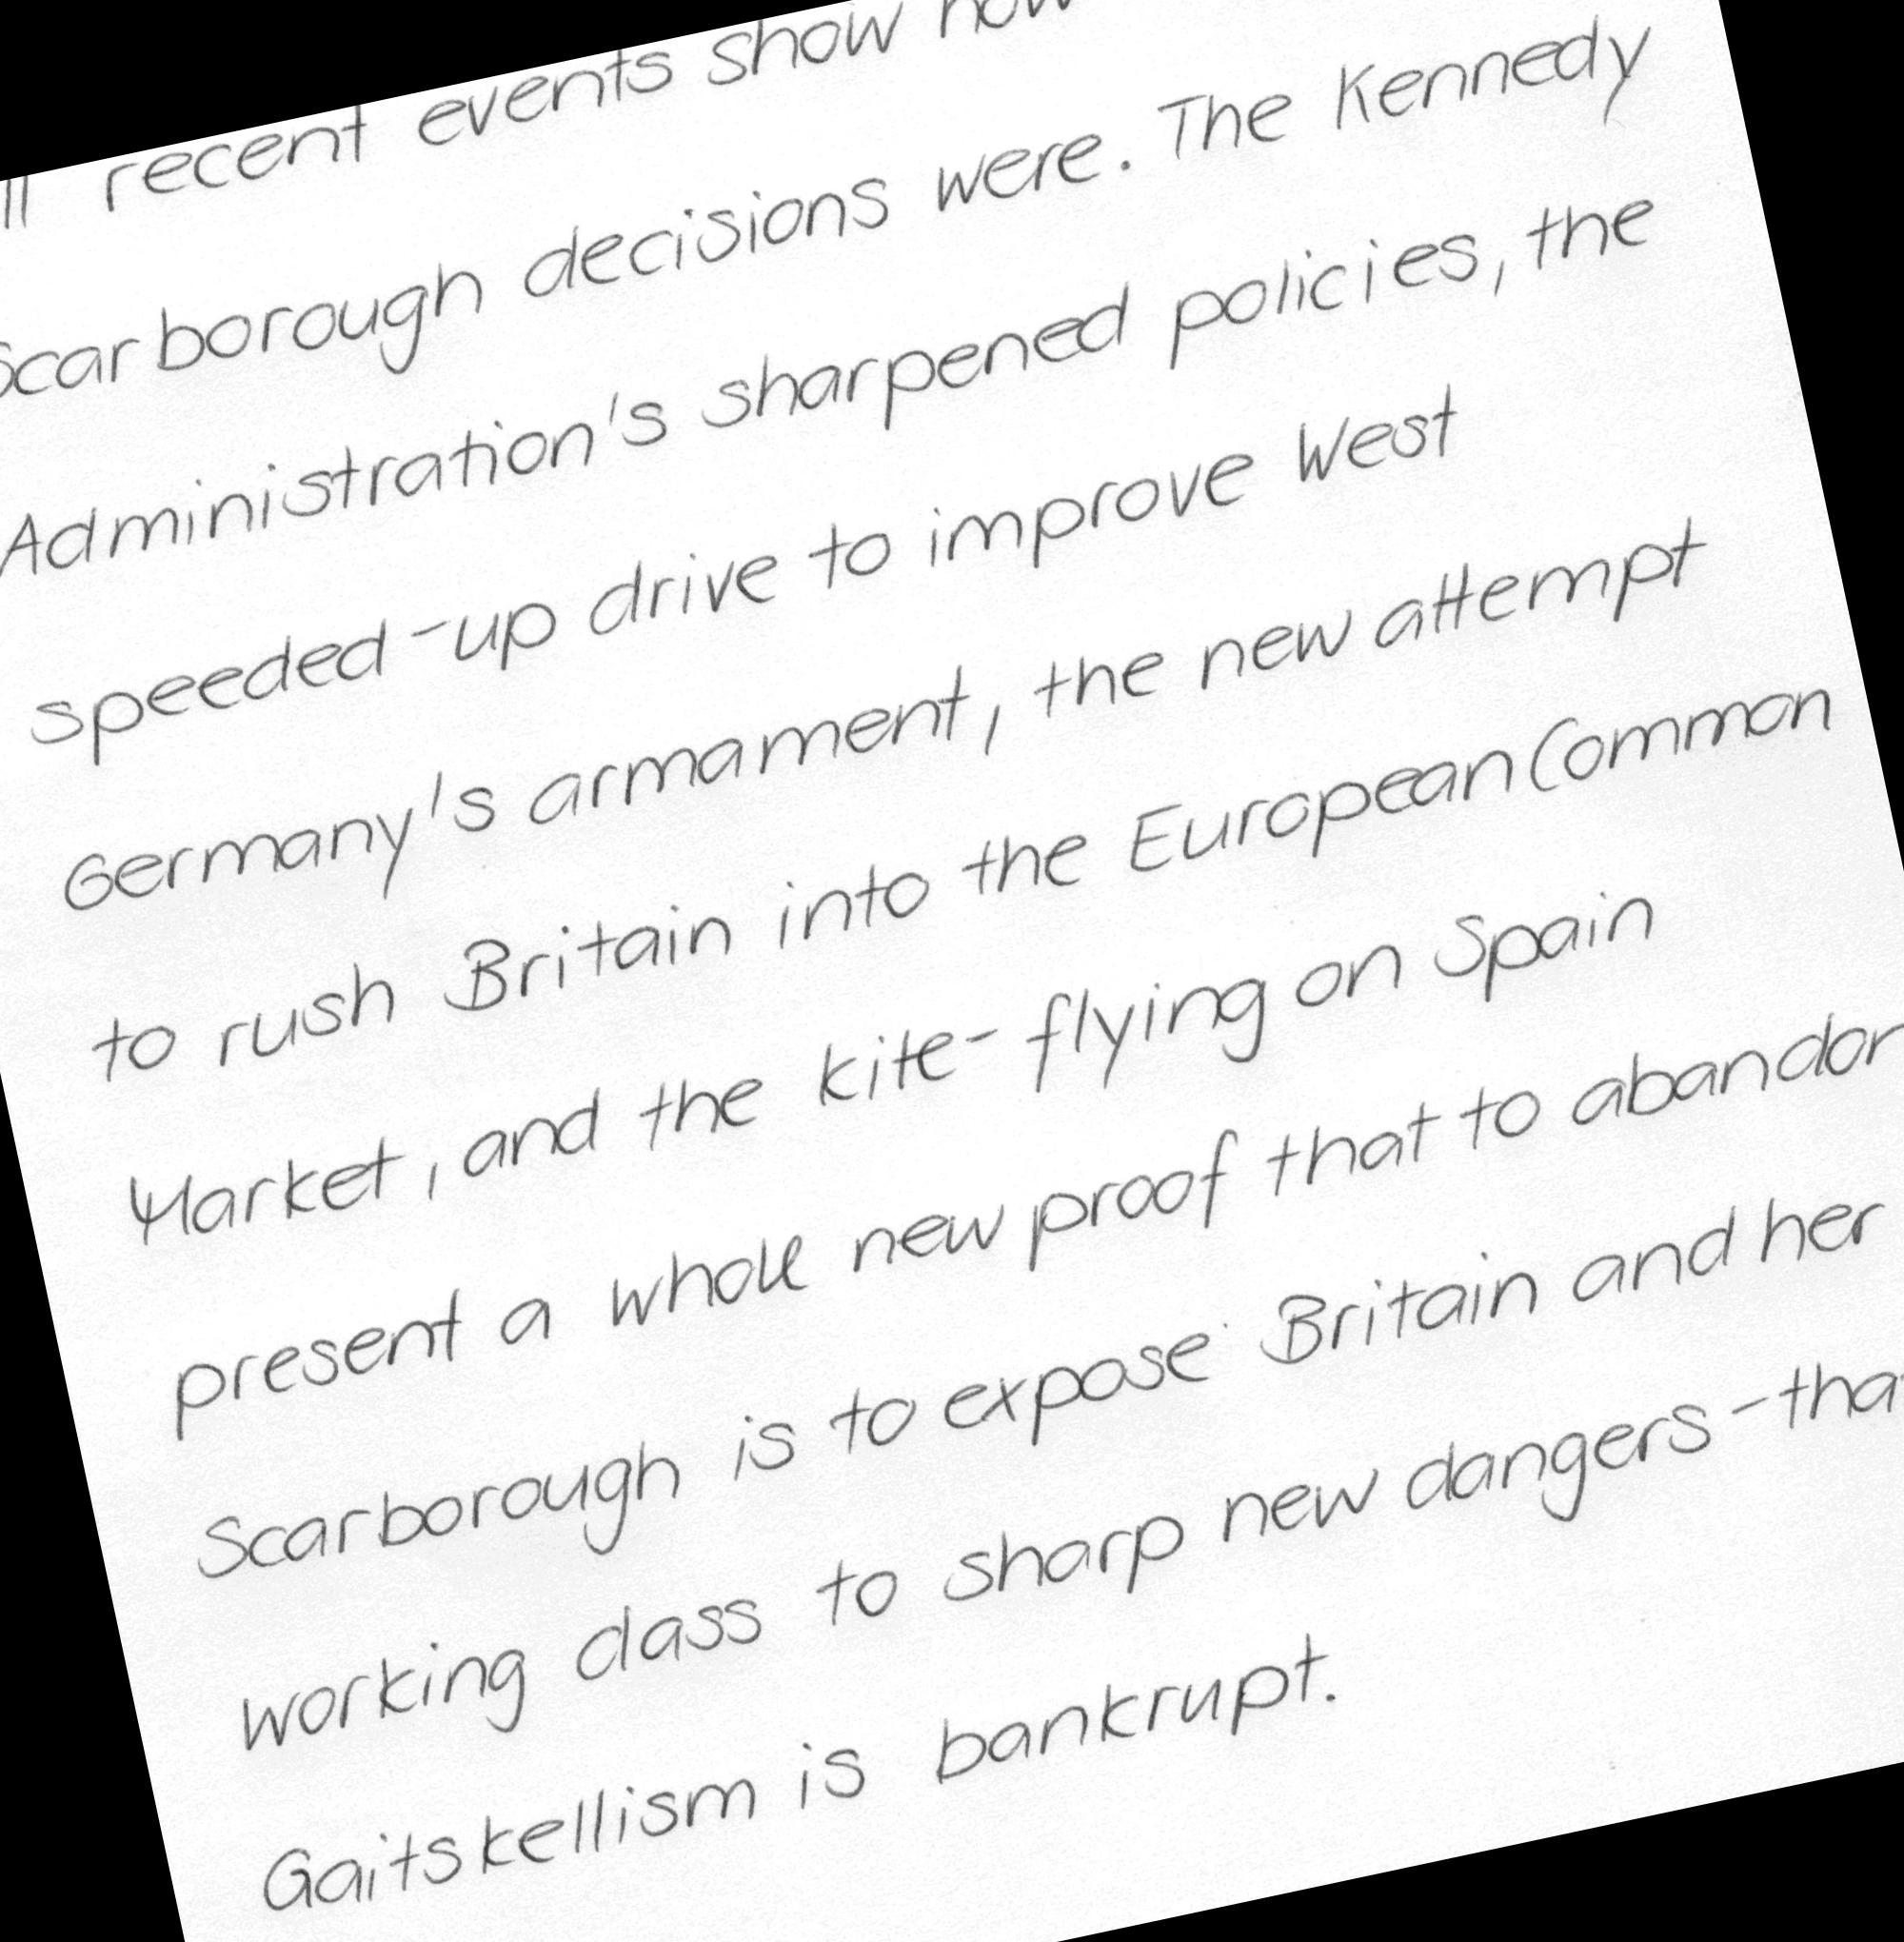 recent events show how
Scarborough decisions were. The Kennedy
Administration's sharpened policies, the
speeded-up drive to improve West
Germany's armament, the new attempt
to rush Britain into the European Common
Market, and the kite-flying on Spain
present a whole new proof that to abandon
Scarborough is to expose Britain and her
working class to sharp new dangers - that
Gaitskellism is bankrupt.